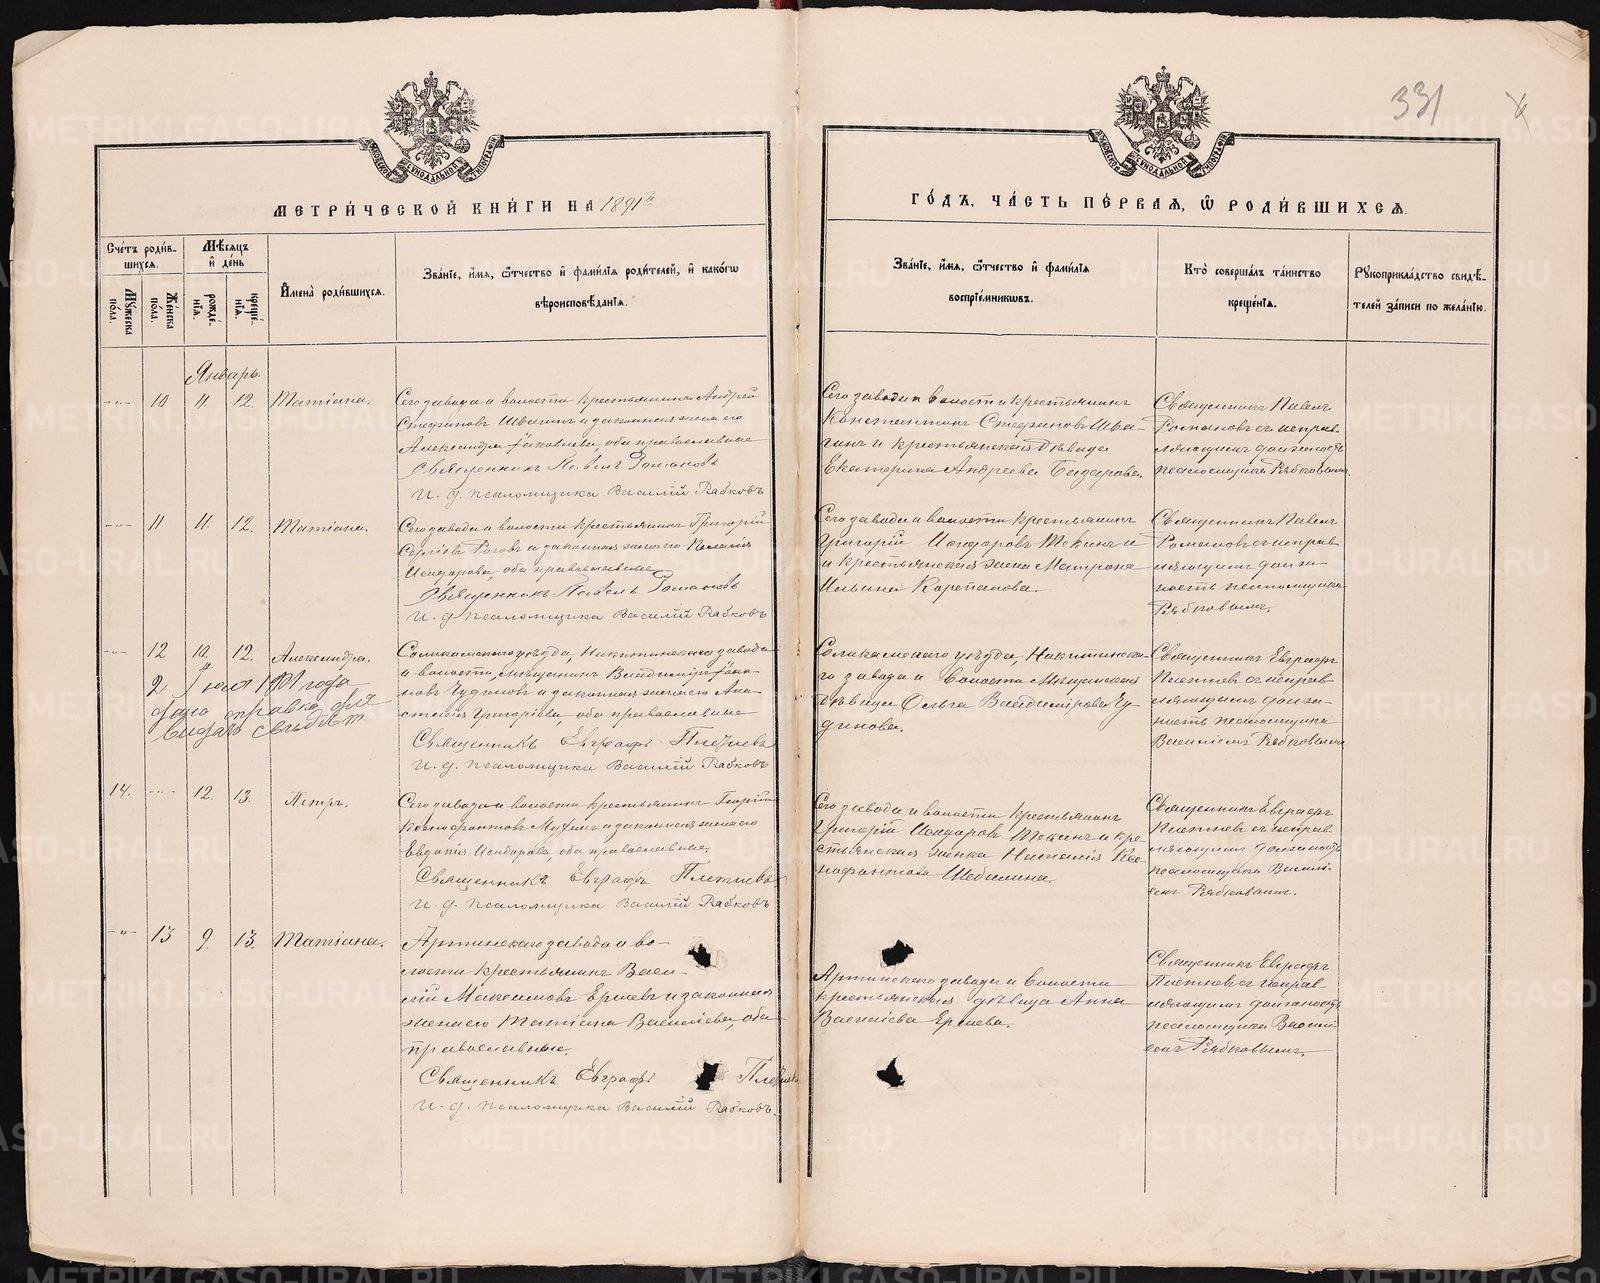 331
МЕТРИ́ЧЕСКОЙ КНИ́ГИ НА 1891й
ГО́ДЪ, ЧА́СТЬ ПЕ́РВАЯ, Ѡ҆ РОДИ́ВШИХСѦ.
Сче́тъ роди́в-
шихсѧ.
Мꙋжеска по́ла.
Же́нска по́ла.
Мѣ́сѧцъ
и҆ де́нь
рожде́нїѧ.
креще́нїѧ.
И҆мена̀ роди́вшихсѧ.
Зва́нїе, и҆́мѧ, ѻ҆́тчество и҆ фами́лїѧ роди́телей, и҆ како́гѡ
вѣроисповѣ́данїѧ.
Зва́нїе, и҆́мѧ, ѻ҆́тчество и҆ фами́лїѧ
воспрїе́мникѡвъ.
Кто̀ соверша́лъ та́инство
креще́нїѧ.
Рꙋкоприкла́дство свидѣ́-
телей за́писи по жела́нїю.
Январь.
10 11. 12. Татіана.
Сего завода и волости крестьянинъ Андрей
Стефановъ Швагинъ и законная жена его
Александра Іаковлева, оба православные
Священникъ Павелъ Романовъ
И. д. псаломщика Василій Рябковъ
Сего завода и волости крестьянинъ
Константинъ Стефановъ Шва-
гинъ и крестьянская дѣвица
Екатерина Андреева
Священникъ Павелъ
Романовъ съ исправ-
ляющимъ должность
псаломщика Рябковымъ.
11 11. 12. Татіана.
Сего завода и волости крестьянинъ Григорій
Сергіевъ Роговъ и законная жена его Пелагія
Исидорова, оба православные
Священникъ Павелъ Романовъ
И. д. псаломщика Василій Рябковъ
Сего завода и волости крестьянинъ
Григорій Исидоровъ Токинъ и
и крестьянская жена Матрона
Ильина Карепанова.
Священникъ Павелъ
Романовъ съ исправ
ляющимъ долж-
ность псаломщика
Рябковымъ.
12 10. 12. Александра.
2 Іюля 1901 года
дана справка для
выдачи свидѣт
Соликамскаго уѣзда, Никитинскаго завода
и волости, мѣщанинъ Владиміръ Іоан-
новъ Чудиновъ и законная жена его Ана-
стасія Григоріева, оба православные
Священникъ Евграфъ Плетневъ
И. д. псаломщика Василій Рябковъ
Соликамскаго уѣзда, Никитинска-
го завода и волости мѣщанская
дѣвица Ольга Владимірова Чу-
динова.
Священникъ Евграфъ
Плетневъ съ исправ
ляющимъ долж-
ность псаломщика
Василіемъ Рябковымъ
14. 12. 13. Петръ.
Сего завода и волости крестьянинъ Георгій
Ксенофонтовъ Мухинъ и законная жена его
Евдокія Исидорова, оба православные.
Священникъ Евграфъ Плетневъ
И. д. псаломщика Василій Рябковъ
Сего завода и волости крестьянинъ
Григорій Исидоровъ Токинъ и кре-
стьянская женка Наталія Ксе-
нофонтова Шебалина.
Священникъ Евграфъ
Плетневъ съ исправ
ляющимъ должность
псаломщика Васи-
емъ Рябковымъ.
13 9. 13. Татіана.
Артинскаго завода и во-
лости крестьянинъ Васи-
лій Максимовъ Ершовъ и законная
жена его Татіана Василіева, оба
православные.
Священникъ Евграфъ Плетневъ
И. д. псаломщика Василій Рябковъ.
Артинскаго завода и волости
крестьянская дѣвица Анна
Василіева Ершова.
Священникъ Евграфъ
Плетневъ съ исправ-
ляющимъ должность
псаломщика Васил-
емъ Рябковымъ.